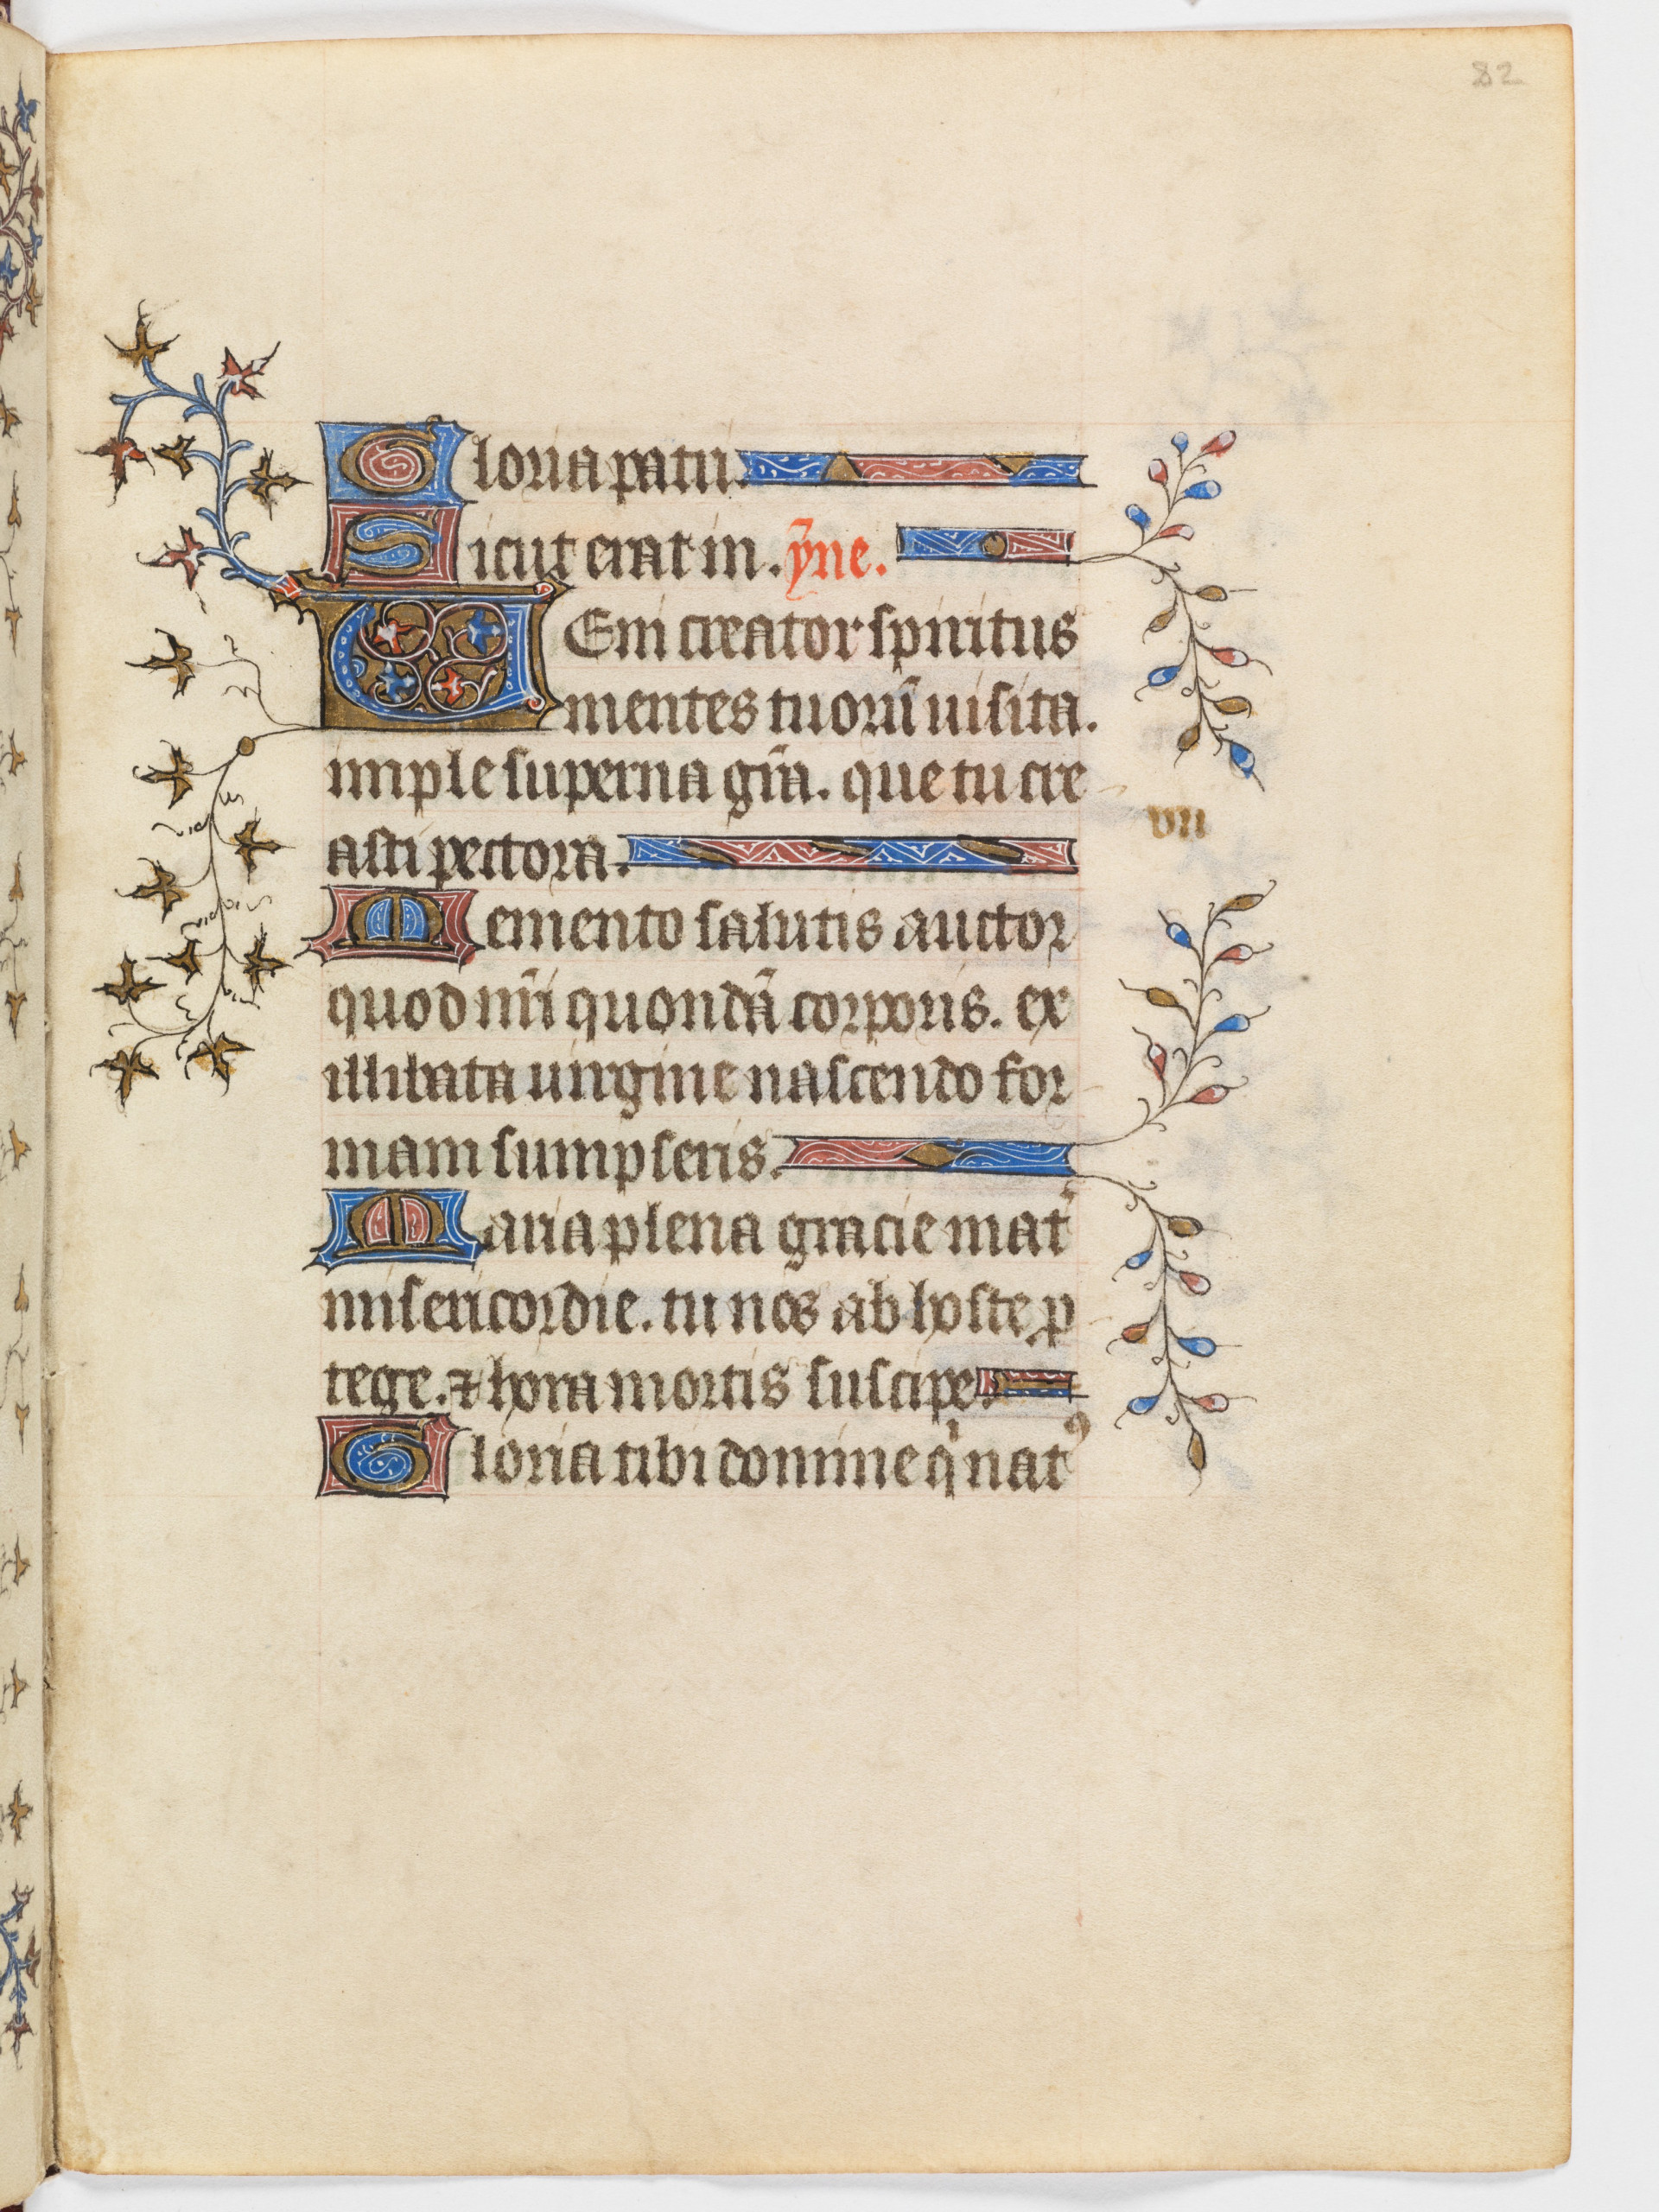 82
Gloria patri.
Sicut erat in. ẏne.
VEni creator spiritus
mentes tuorū uisita.
imple superna gr̄a. que tu cre
asti pectora.
vii
Memento salutis auctor
quod nr̄i quondā corporis. ex
illibata uirgine nascendo for
mam sumpseris.
Maria plena gracie mat̄
misericordie. tu nos ab hoste ꝓ
tege. ⁊ hora mortis suscipe.
Gloria tibi domine qͥ natꝰ